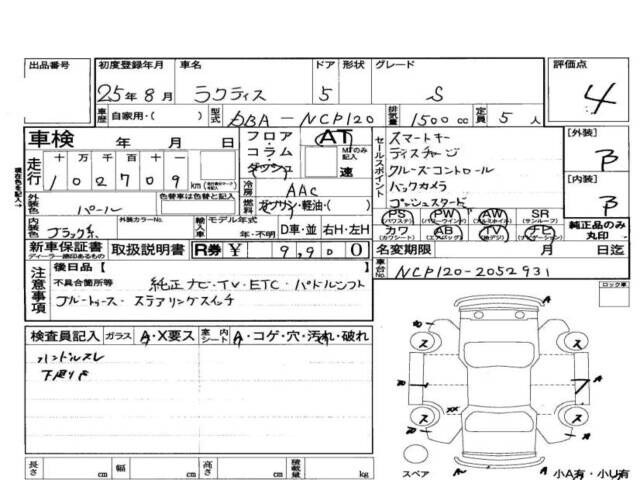 出品番号 初度登録年月 車名 ドア 形状 グレード 評価点
25年8月 ラクティス 5 S 4
車歴 自家用・( ) 型式 DBA-NCP120 排気量 1500cc 定員 5人
車検 年 月 日 フロア・コラム・ダッシュ AT MTのみ記入 速
走行 十 万 千 百 十 一
102709 km
冷房 AAC
燃料 ガソリン・軽油・( )
外装色 パール 色替車は色替と記入
内装色 ブラック系 外装カラーNo. 輸入車 モデル年式 年・不明 D車・並 右H・左H
セールスポイント スマートキー
ディスチャージ
クルーズコントロール
バックカメラ
プッシュスタート
PS (パワステ) PW (パワーウインド) AW (アルミホイル) SR (サンルーフ)
カワ (カワシート) AB (エアバッグ) TV (地デジ) ナビ (ナビゲーション)
[外装] B
[内装] B
純正品のみ丸印
新車保証書 ディーラー捺印あるもの 取扱説明書 R券 ¥ 9,900 名変期限 月 日迄
車台No. NCP120-2052931
注意事項 後日品【 】
不具合箇所等 純正ナビ・TV・ETC・パドルシフト
ブルートゥース・ステアリングスイッチ
ロック車
検査員記入 ガラス A・X要ス 室内シート A・コゲ・穴・汚れ・破れ
ハンドルスレ
下廻りサ
ス ス
ス ス
A
A
XX
A A
スペア 小A有・小U有
長さ cm 幅 cm 高さ cm 積載量 kg
現在色を記入→